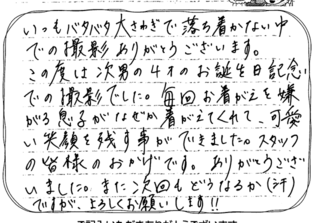 いつもバタバタ大さわぎで落ち着かない中
での撮影ありがとうございます。
この度は次男の4才のお誕生日記念
での撮影でした。毎回お着がえを嫌
がる息子がなぜか着がえてくれて、可愛
い笑顔を残す事ができました。スタッフ
の皆様のおかげです。ありがとうござい
いました。また次回もどうなるか(汗)
ですが、よろしくお願いします!!